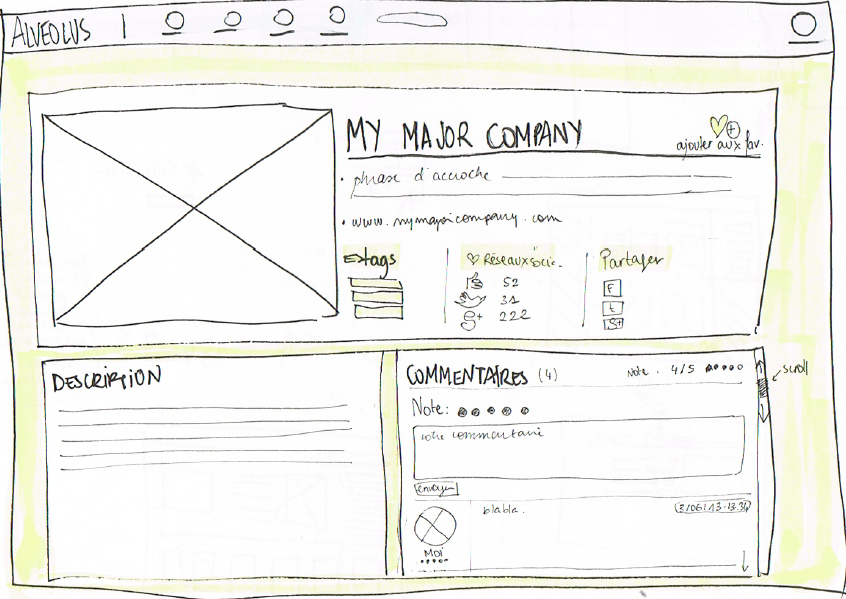 ALVEOLUS
MY MAJOR COMPANY
ajouter aux fav.
• phrase d'accroche
• www.mymajorcompany.com
tags
Réseaux Soc.
Partager
52
31
g+ 222
F
t
g+
DESCRIPTION
COMMENTAIRES (4)
Note : 4/5
scroll
Note:
votre commentaire
envoyer
blabla.
MOI